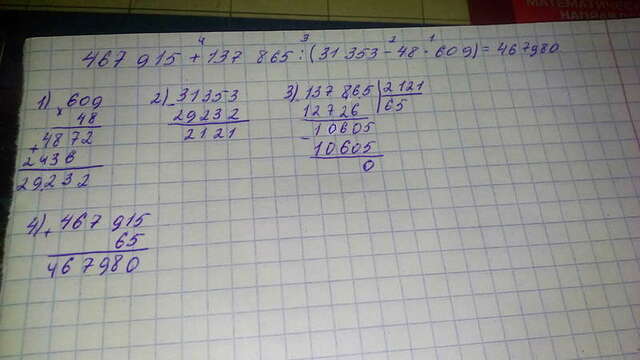 МАТЕМАТИЧЕСК
НАПРАВ
4 3 2 1
467 915 + 137 865 : (31 353 - 48 · 609) = 467980
1) × 609
48
+ 4872
2436
29232
2) - 31353
29232
2121
3) 137 865 | 2121
12726 | 65
- 10605
10605
0
4) + 467 915
65
467980